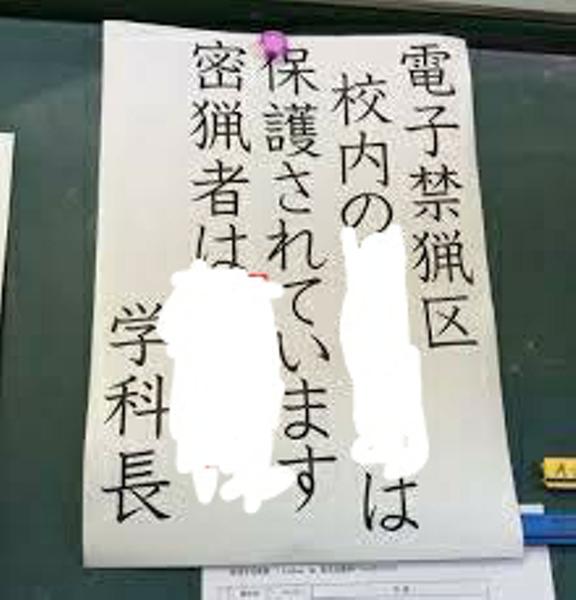 電子禁猟区
校内の
は
保護されています
密猟者は
学科長